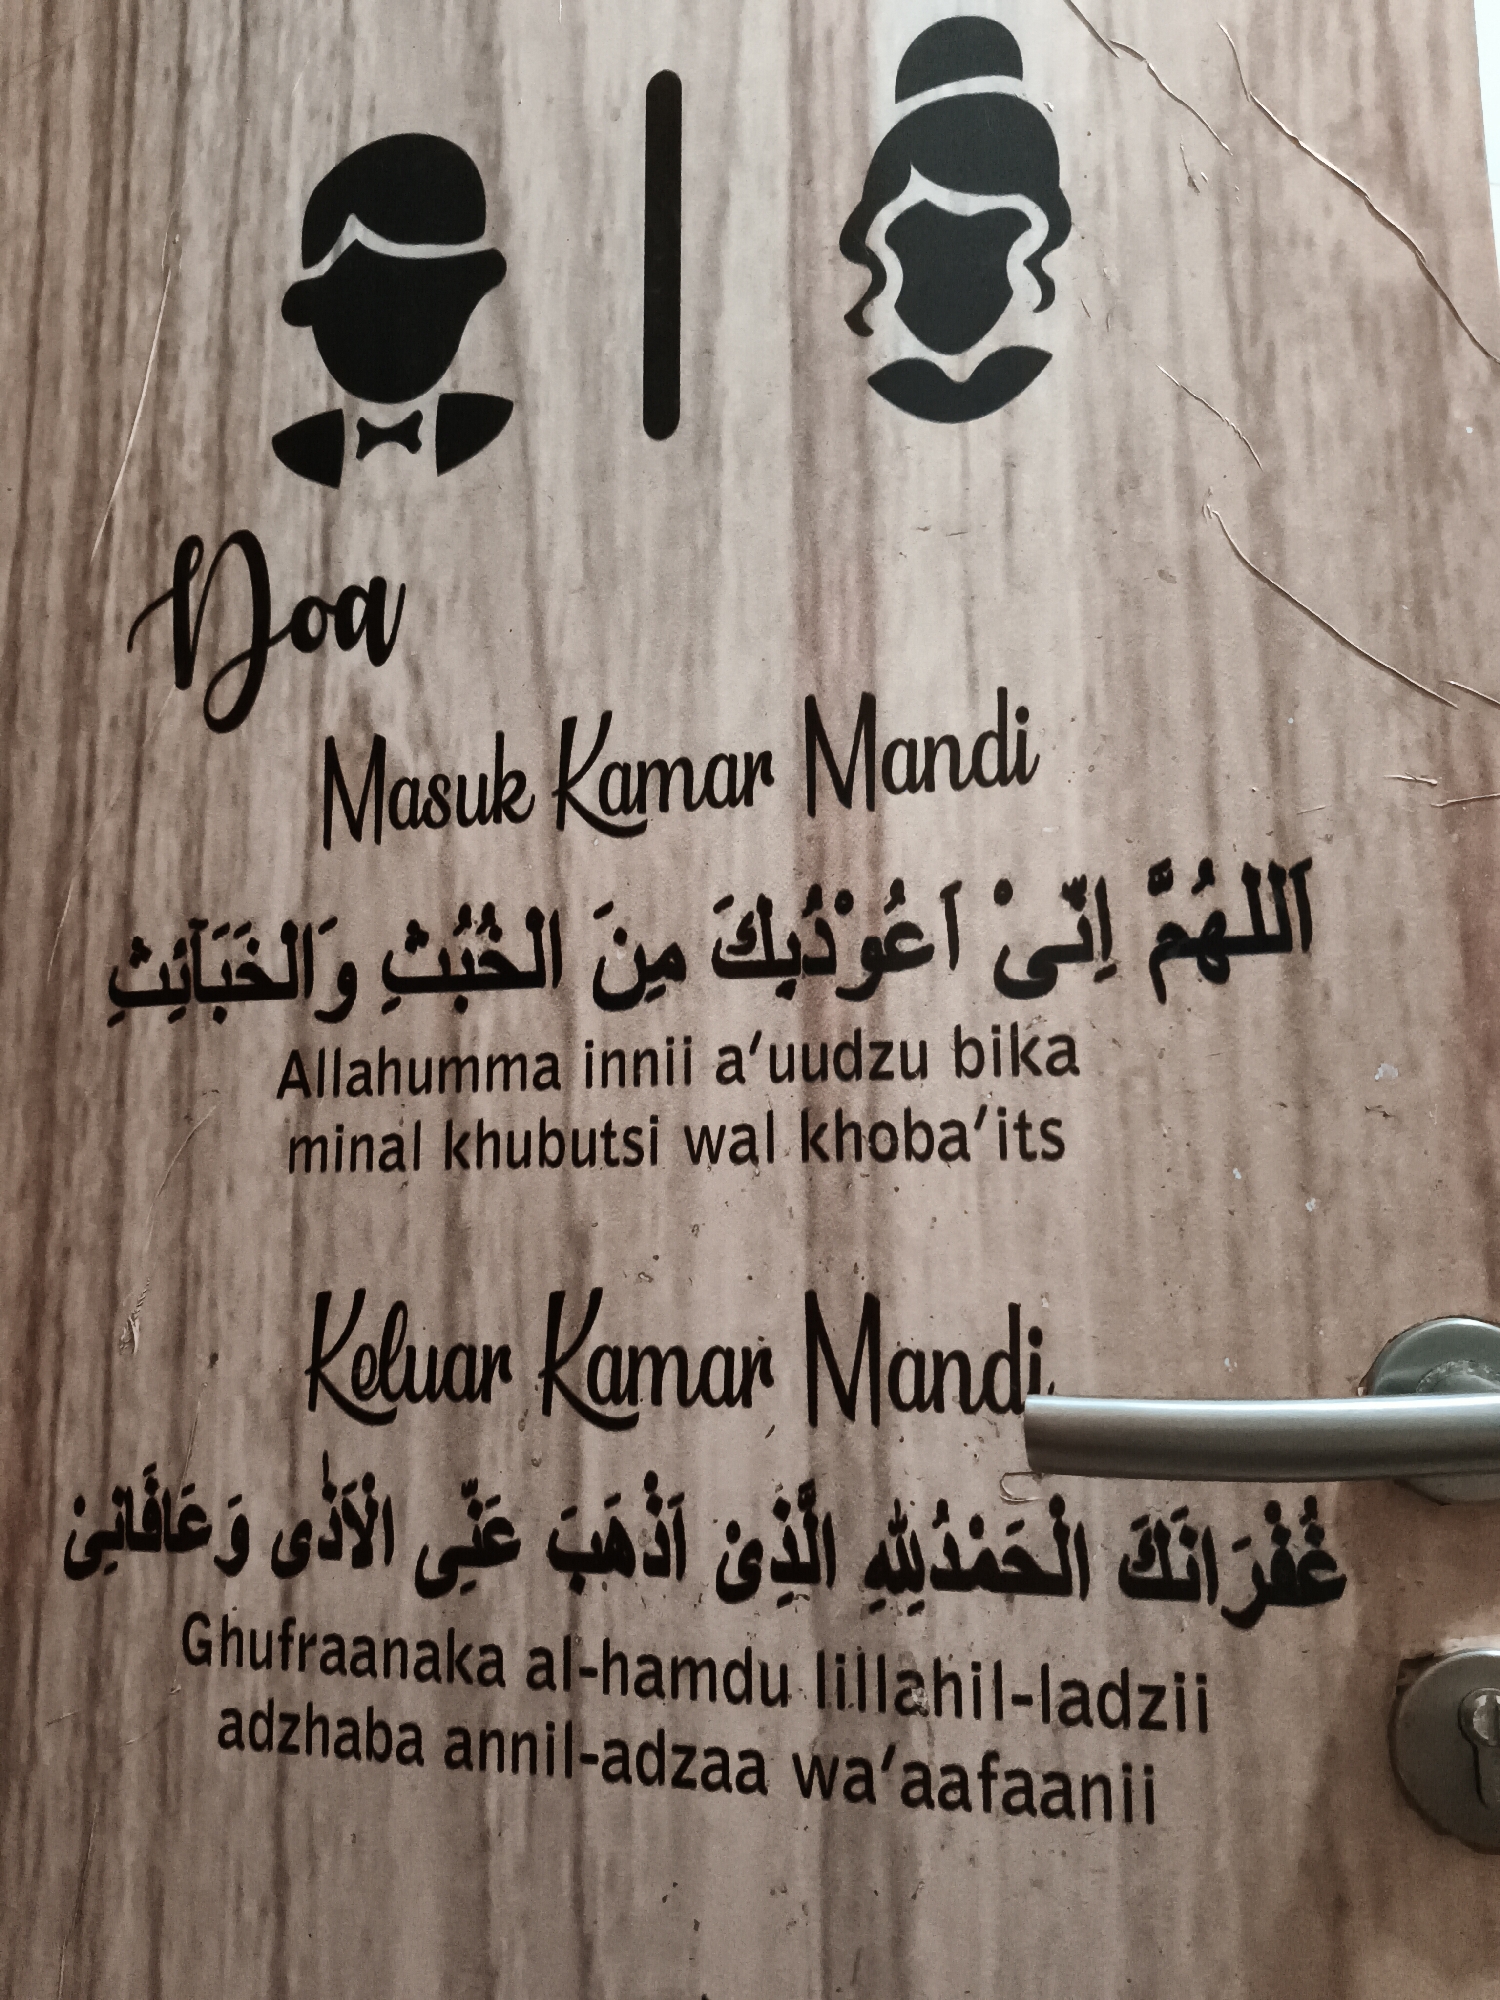 Doa
Masuk Kamar Mandi
اَللهُمَّ اِنِّىْ اَعُوْذُبِكَ مِنَ الْخُبُثِ وَالْخَبَآئِثِ
Allahumma innii a'uudzu bika
minal khubutsi wal khoba'its
Keluar Kamar Mandi
غُفْرَانَكَ الْحَمْدُلِلّٰهِ الَّذِىْ اَذْهَبَ عَنِّى الْاَذٰى وَعَافَانِىْ
Ghufraanaka al-hamdu lillahil-ladzii
adzhaba annil-adzaa wa'aafaanii